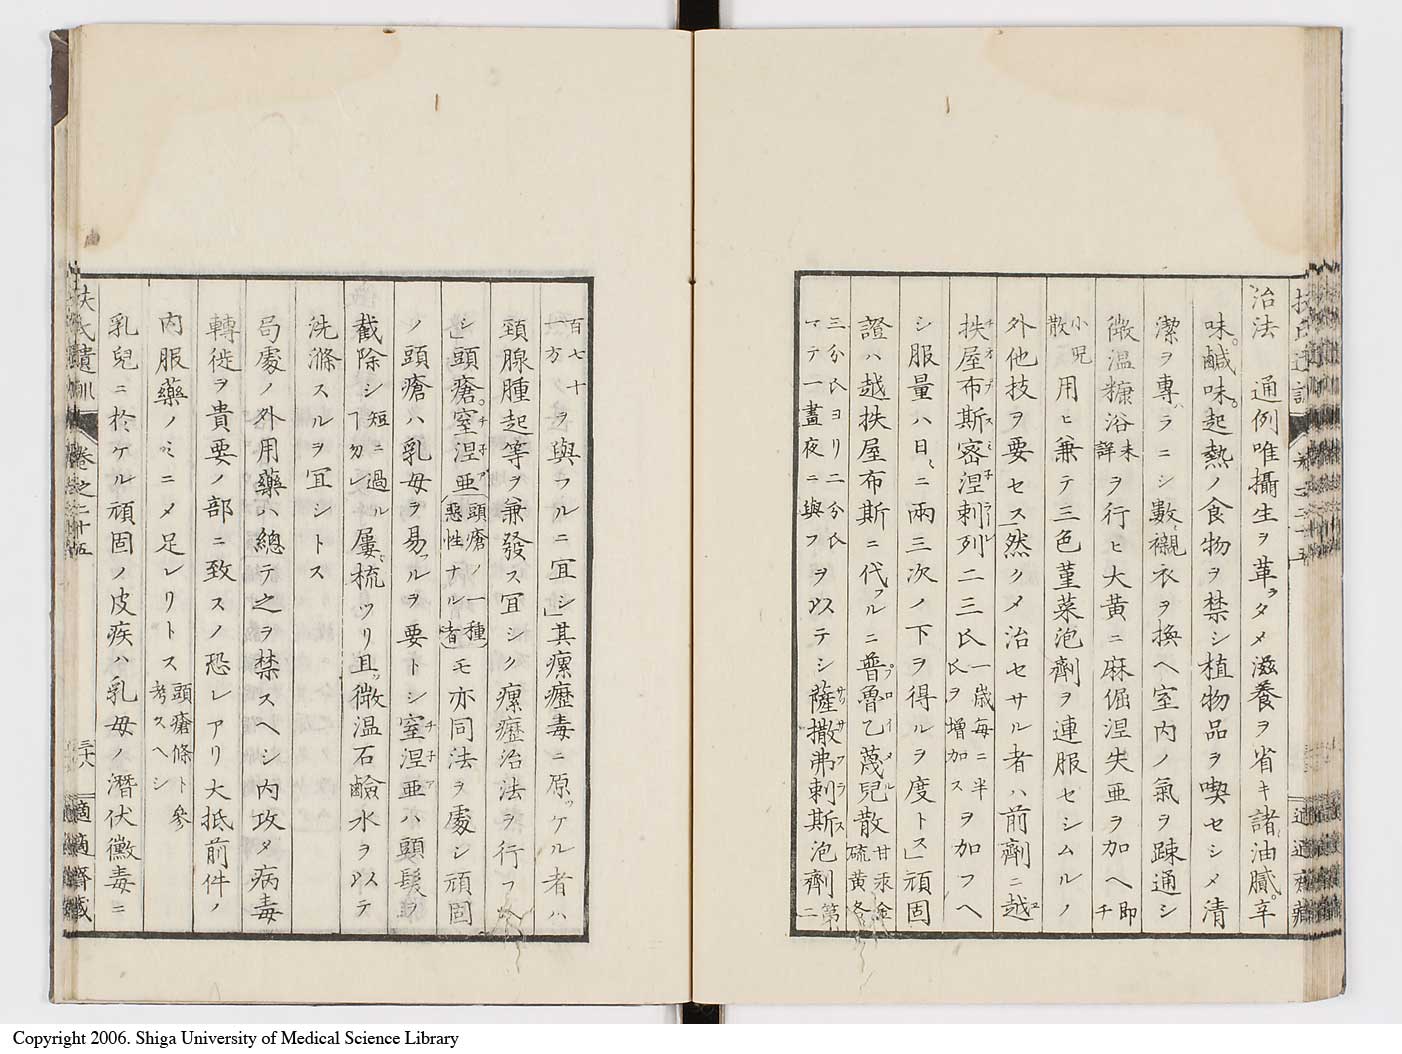 治法 通例唯攝生ヲ革ヲタメ滋養ヲ省キ諸油膩。辛
味。鹹味。起熱ノ食物ヲ禁シ植物品ヲ喫セシメ清
潔ヲ專ラニシ數襯衣ヲ換ヘ室内ノ氣ヲ疎通シ
微温糠浴未詳ヲ行ヒ大黄ニ麻倔涅失亜ヲ加ヘ即チ
小児散用ヒ兼テ三色菫菜泡劑ヲ連服セシムルノ
外他技ヲ要セス然クメ治セサル者ハ前劑ニ越
扶屋布斯密涅剌列二三氏一歳毎ニ半氏ヲ増加スヲ加フヘ
シ服量ハ日ニ兩三次ノ下ヲ得ルヲ度トス」頑固
證ハ越扶屋布斯ニ代フルニ普魯乙蔑兒散甘汞金硫黄各
三分氏ヨリ二分氏マテ一晝夜ニ與フヲ以テシ薩撒弗剌斯泡劑第二
百七十一方ヲ與フルニ宜シ」其瘰癧毒ニ原ツケル者ハ
頸腺腫起等ヲ兼發ス宜シク瘰癧治法ヲ行フ
シ」頭瘡。窒涅亜頭瘡ノ一種惡性ナル者モ亦同法ヲ處シ頑固
ノ頭瘡ハ乳母ヲ易フルヲ要トシ窒涅亜ハ頭髮ヲ
截除シ短ニ過ル丁勿レ屢梳ツリ且ツ微温石鹼水ヲ以テ
洗滌スルヲ宜シトス
局處ノ外用藥ハ總テ之ヲ禁スヘシ内攻メ病毒
轉徙ヲ貴要ノ部ニ致スノ恐レアリ大抵前件ノ
内服藥ノミニメ足レリトス頭瘡條ト參考スヘシ
乳兒ニ於ケル頑固ノ皮疾ハ乳母ノ潛伏黴毒ニ
扶氏遺訓 卷之二十五 三十八 適適齋藏
Copyright 2006. Shiga University of Medical Science Library